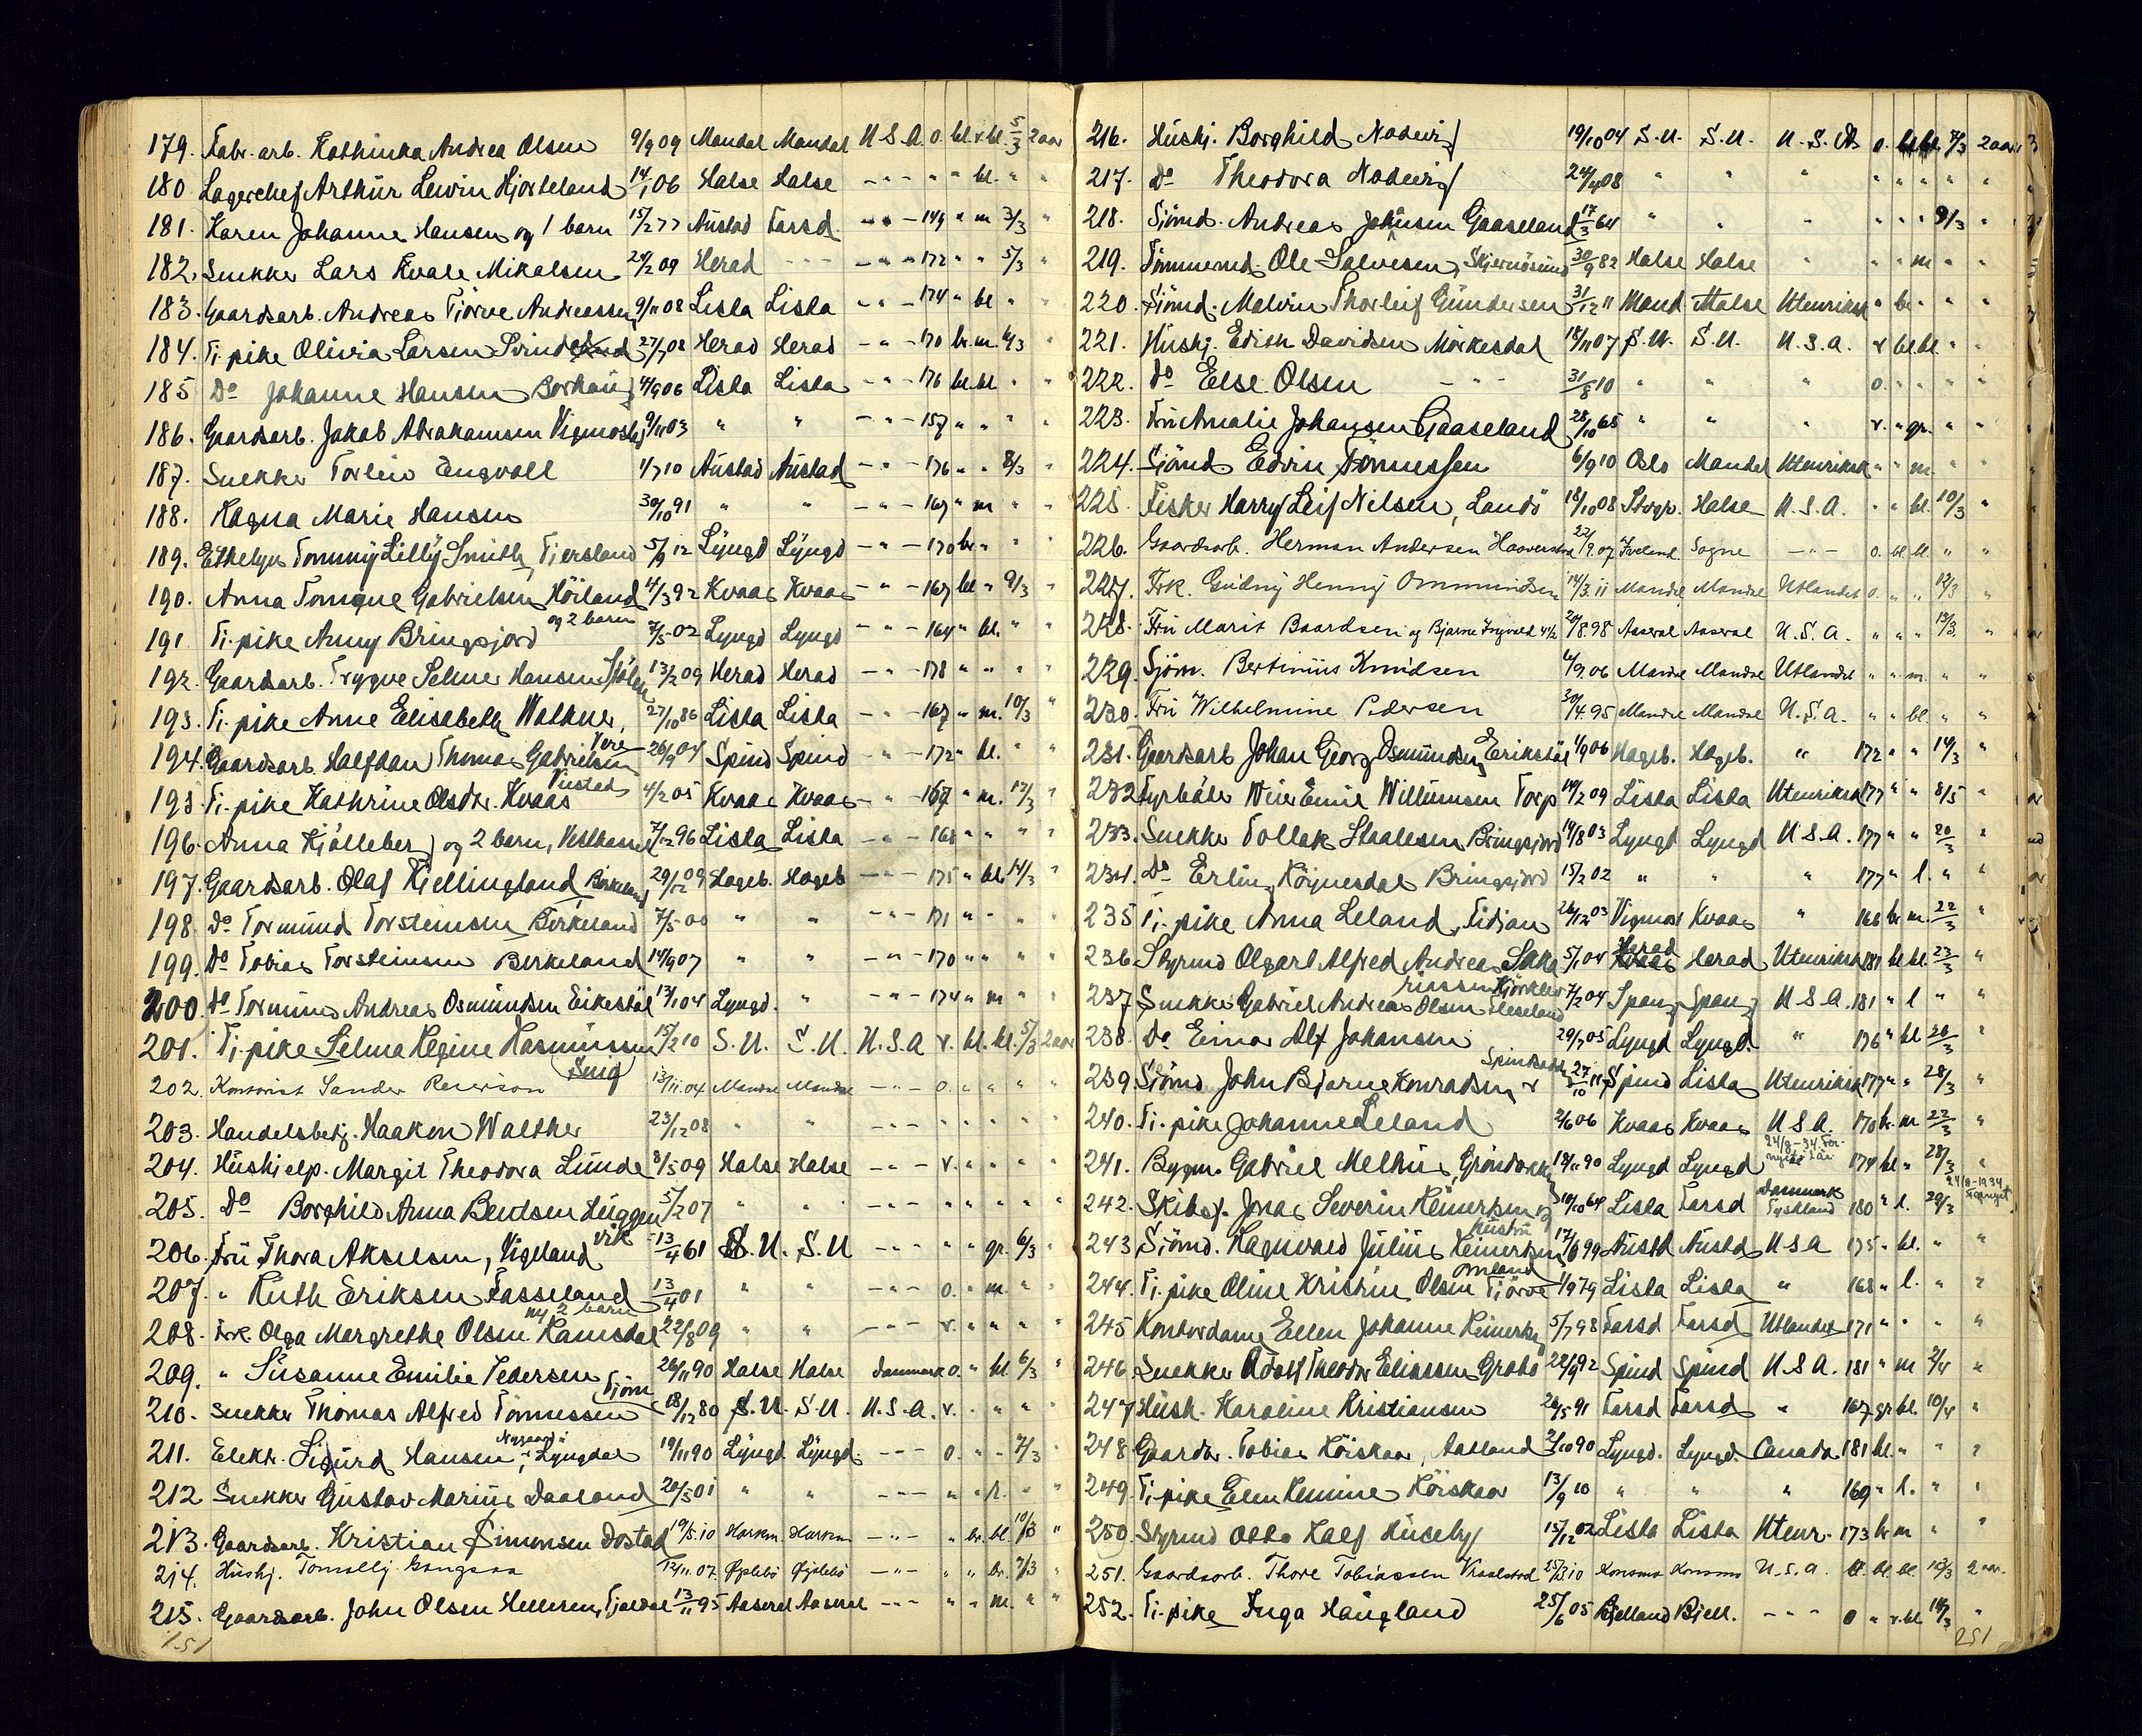 179. Fabr. arb. Kathinka Andrea Olsen 9/9 09 Mandal Mandal U.S.A. o. bl. v. bl. 5/3 2 aar
180 Lagerchef Arthur Lewin Hjorteland 14/1 06 Halse Halse -"- " " bl. " "
181. Karen Johanne Hansen og 1 barn 15/2 77 Austad Farsd. -"- 149 " m 7/3 "
182. Snekker Lars Kvale Mikalsen 29/2 09 Herad --- -"- 172 " " 5/3 "
183. Gaardsarb. Andreas Tjörve Andreassen 9/11 08 Lista Lista -"- 174 " bl " "
184. Tj. pike Olivia Larsen 27/7 08 Herad Herad -"- 170 br. m. 6/3 "
185 Do Johanne Hansen Borhaug 4/9 06 Lista Lista -"- 176 bl. bl. " "
186. Gaardsarb. Jakob Abrahamsen Vigmostad 9/11 03 " " -"- 157 " " " "
187. Snekker Torleiv Engvoll 1/7 10 Austad Austad -"- 176 " " 8/3 "
188. Ragna Marie Hansen 30/10 91 " " -"- 167 " m " "
189. Ethelyn Tommy Lilly Smith, Tjersland 5/9 12 Lyngd Lyngd -"- 170 br " " "
190. Anna Tomine Gabrielsen Höiland og 2 barn 4/3 92 Kvaas Kvaas -"- 167 bl " 9/3 "
191 Tj. pike Anny Bringsjord 7/5 02 Lyngd Lyngd -"- 164 " bl. " "
192. Gaardsarb. Trygve Selmer Hansen 13/2 09 Herad Herad -"- 178 " " " "
193. Tj. pike Anne Elisabeth Wathne, Vere 27/10 86 Lista Lista -"- 167 " m. 10/3 "
194. Gaardsarb. Halfdan Thomas Gabrielsen 26/9 04 Spind Spind -"- 172 " bl. " "
195 Tj. pike Kathrine Olsdr. Kvaas 4/2 05 Kvaas Kvaas -"- 167 " m. 12/3 "
196. Anna Kjölleberg og 2 barn, 7/12 96 Lista Lista -"- 168 " " " "
197. Gaardsarb. Olaf Kjellingland Birkeland 29/12 09 Hageb. Hageb -"- 175 " bl. 14/3 "
198. Do Tormund Torsteinsen Birkeland 7/5 00 " " -"- 171 " " " "
199. Do Tobias Torsteinsen Birkeland 14/9 07 " " -"- 170 " " " "
200. Do Tormund Andreas Osmundsen Eikestöl 13/1 04 Lyngd. " -"- 174 " m " "
201. Tj. pike Selma Regine Rasmussen 15/2 10 S.U. S.U. U.S.A v. bl. bl. 5/3 2 aar
202. Kontorist Sander Reierson 13/11.04 Mandal Mandal -"- o. " " " "
203. Handelsbetj. Haakon Walther 23/12 08 " " -"- " " " " "
204. Hüshjelp. Margit Theodora Lunde 8/5 09 Halse Halse -"- v. " " " "
205. Do Borghild Anna Berdtsen Luggenvik 5/2 07 " " -"- " " " " "
206. Frü Thora Akselsen, Vigeland 13/4 61 S.U. S.U -"- " " gr. 6/3 "
207. " Ruth Eriksen Fasseland m/ 2 barn 13/4 01 " " -"- o. " m. " "
208. Frk Olga Margrethe Olsen Ramsdal 22/8 09 " " -"- v. " " " "
209. " Susanne Emilie Pedersen 26/11 90 Halse Halse Danmark o. " bl 6/3 "
210. Snekker Thomas Alfred Tönnessen 18/12 80 S.U. S.U. U.S.A. v. " " " "
211. Elektr. Sigurd Hansen, Nygaard Lyngdal 19/11 90 Lyngd Lyngd. -"- o. " " 7/3 "
212 Snekker Gustav Marius Daaland 20/5 01 " " -"- " " " "
213. Gaardsarb. Kristian Simonsen Dostad 19/5.10 Harkm Harkm -"- " br. bl. 10/3 "
214. Hüshj. 12/11.07. Øyslebö Øyslebö -"- " " br. 7/3 "
215. Gaardsarb. John Olsen 13/11 95 Aaseral Aaseral -"- " " m. " "
151
216. Hüshj. Borghild Nodevig 19/10 04 S.U. S.U. U.S.A o. bl bl. 7/3 2 aar
217. Do Theodora Nodevig 24/4 08 " " " " " " " "
218. Sjömd. Andreas Johansen Gaaseland 17/3 64 " " " " " " 9/3 "
219. Tömmermd. Ole Salvesen, Skjernösund 30/9 82 Halse Halse " " " m " "
220. Sjömd. Malvin Thorleif Gundersen 31/12 11 Mand Halse Utenriks " br " " "
221. Hüshj. Edith Davidsen Mörkesdal 18/11 07 S.U. S.U. U.S.A. v bl bl. " "
222. Do Else Olsen -"- 31/8 10 " " " o. " " " "
223. Frü Amalie Johansen Gaaseland 28/10 65 " " " v. " gr. " "
224. Sjömd Edvin Tönnessen 6/9 10 Oslo Mandal Utenriks " " m. " "
225. Fisker Harry Leif Nilsen, Landö 18/10 08 Halse U.S.A. " " bl. 10/3 "
226. Gaardsarb. Herman Andersen 22/9.07 Iveland Sogne -"- o. bl bl. " "
227. Frk. Gudny Henny Ommundsen 14/3.11 Mandal Mandal Utlandet o. " " 12/3 "
228. Frü Marit Baardsen og Bjarne Ingvald 4 1/2 20/8.98 Aaseral Aaseral U.S.A. " " " 13/3. "
229. Sjöm. Bertinius Knudsen 4/9.06 Mandal Mandal Utlandet " " m. " "
230. Frü Wilhelmine Pedersen 30/4.95 Mandal Mandal U.S.A. " " bl. " "
231. Gaardsarb Johan Georg Osmundsen Eikestöl 1/9 06 Hageb. Hageb. " 172 " " 14/3 "
232 Fyrböter Emil Willumsen Torp 19/2 09 Lista Lista Utenriks 177 " " 8/5 "
233. Snekker Tollak Staalesen Bringsjord 19/8 03 Lyngd Lyngd U.S.A. 177 " " 20/3 "
234. Do Erling Röynesdal Bringsjord 15/2 02 " " " 177 " l. " "
235 Tj. pike Anna Leland, 26/12 03 Vigmos Kvaas " 166 br m. 22/3 "
236 Styrmd Olgart Alfred Andreas 5/1 04 Herad Herad Utenriks 181 bl bl. 23/3 "
237 Snekker Gabriel Andreas Olsen 7/2 04 Spang. Spang. U.S.A. 181 " l " "
238. Do Einar Alf Johansen 29/7 05 Lyngd Lyngd. " 176 " bl. 26/3 "
239. Sjömd John Bjarne Konradsen 27/10 11 Spind Lista Utenriks 177 " " 28/3 "
240. Tj. pike Johanne Leland 2/6 06 Kvaas Kvaas U.S.A. 170 br. m. 22/3 "
241. Bygm. Gabriel Melhus, Gröndokk 19/11 90 Lyngd Lyngd 24/8-34 For- 174 bl " 28/3 "
242. Skibsf. Jonas Severin Reinertsen og hustru 10/10 64 Lista Farsd Danmark Tyskland 180 " l. 29/3 24/8-1934 Fornyet
243 Sjömd. Ragnvald Julius Reinertsen 17/8 99 Austd Austd U.S.A 175 " bl. " "
244. Tj. pike Oline Kristine Olsen Tjörve Omland 1/9 79 Lista Lista " 168 " l. " "
245 Kontordame Ellen Johanne Reinertsen 5/7 98 Farsd Farsd Utlandet 171 " " " "
246. Snekker Adolf Theodor Eliassen 22/9 92 Spind Spind U.S.A. 181 " m 2/4 "
247 Hüsh. Karoline Kristiansen 26/5 91 Farsd Farsd " 167 gr bl. 10/4 "
248 Gaardbr. Tobias Röiskar, Aatland 2/10 90 Lyngd. Lyngd. Canada 181 bl. " " "
249. Tj. pike Elen Remine Röiskar 13/9 10 " " " 169 " l. " "
250. Styrmd Otto Ralf Huseby 15/12 02 Lista Lista Utenr. 173 br m " "
251. Gaardsarb. Thore Tobiassen 25/3 10 Konsmo Konsmo U.S.A. bl bl. 2 aar.
252. Tj. pike Inga Haugland 25/6 05 Bjelland Bjell. -"- o " v. bl 14/3 "
251